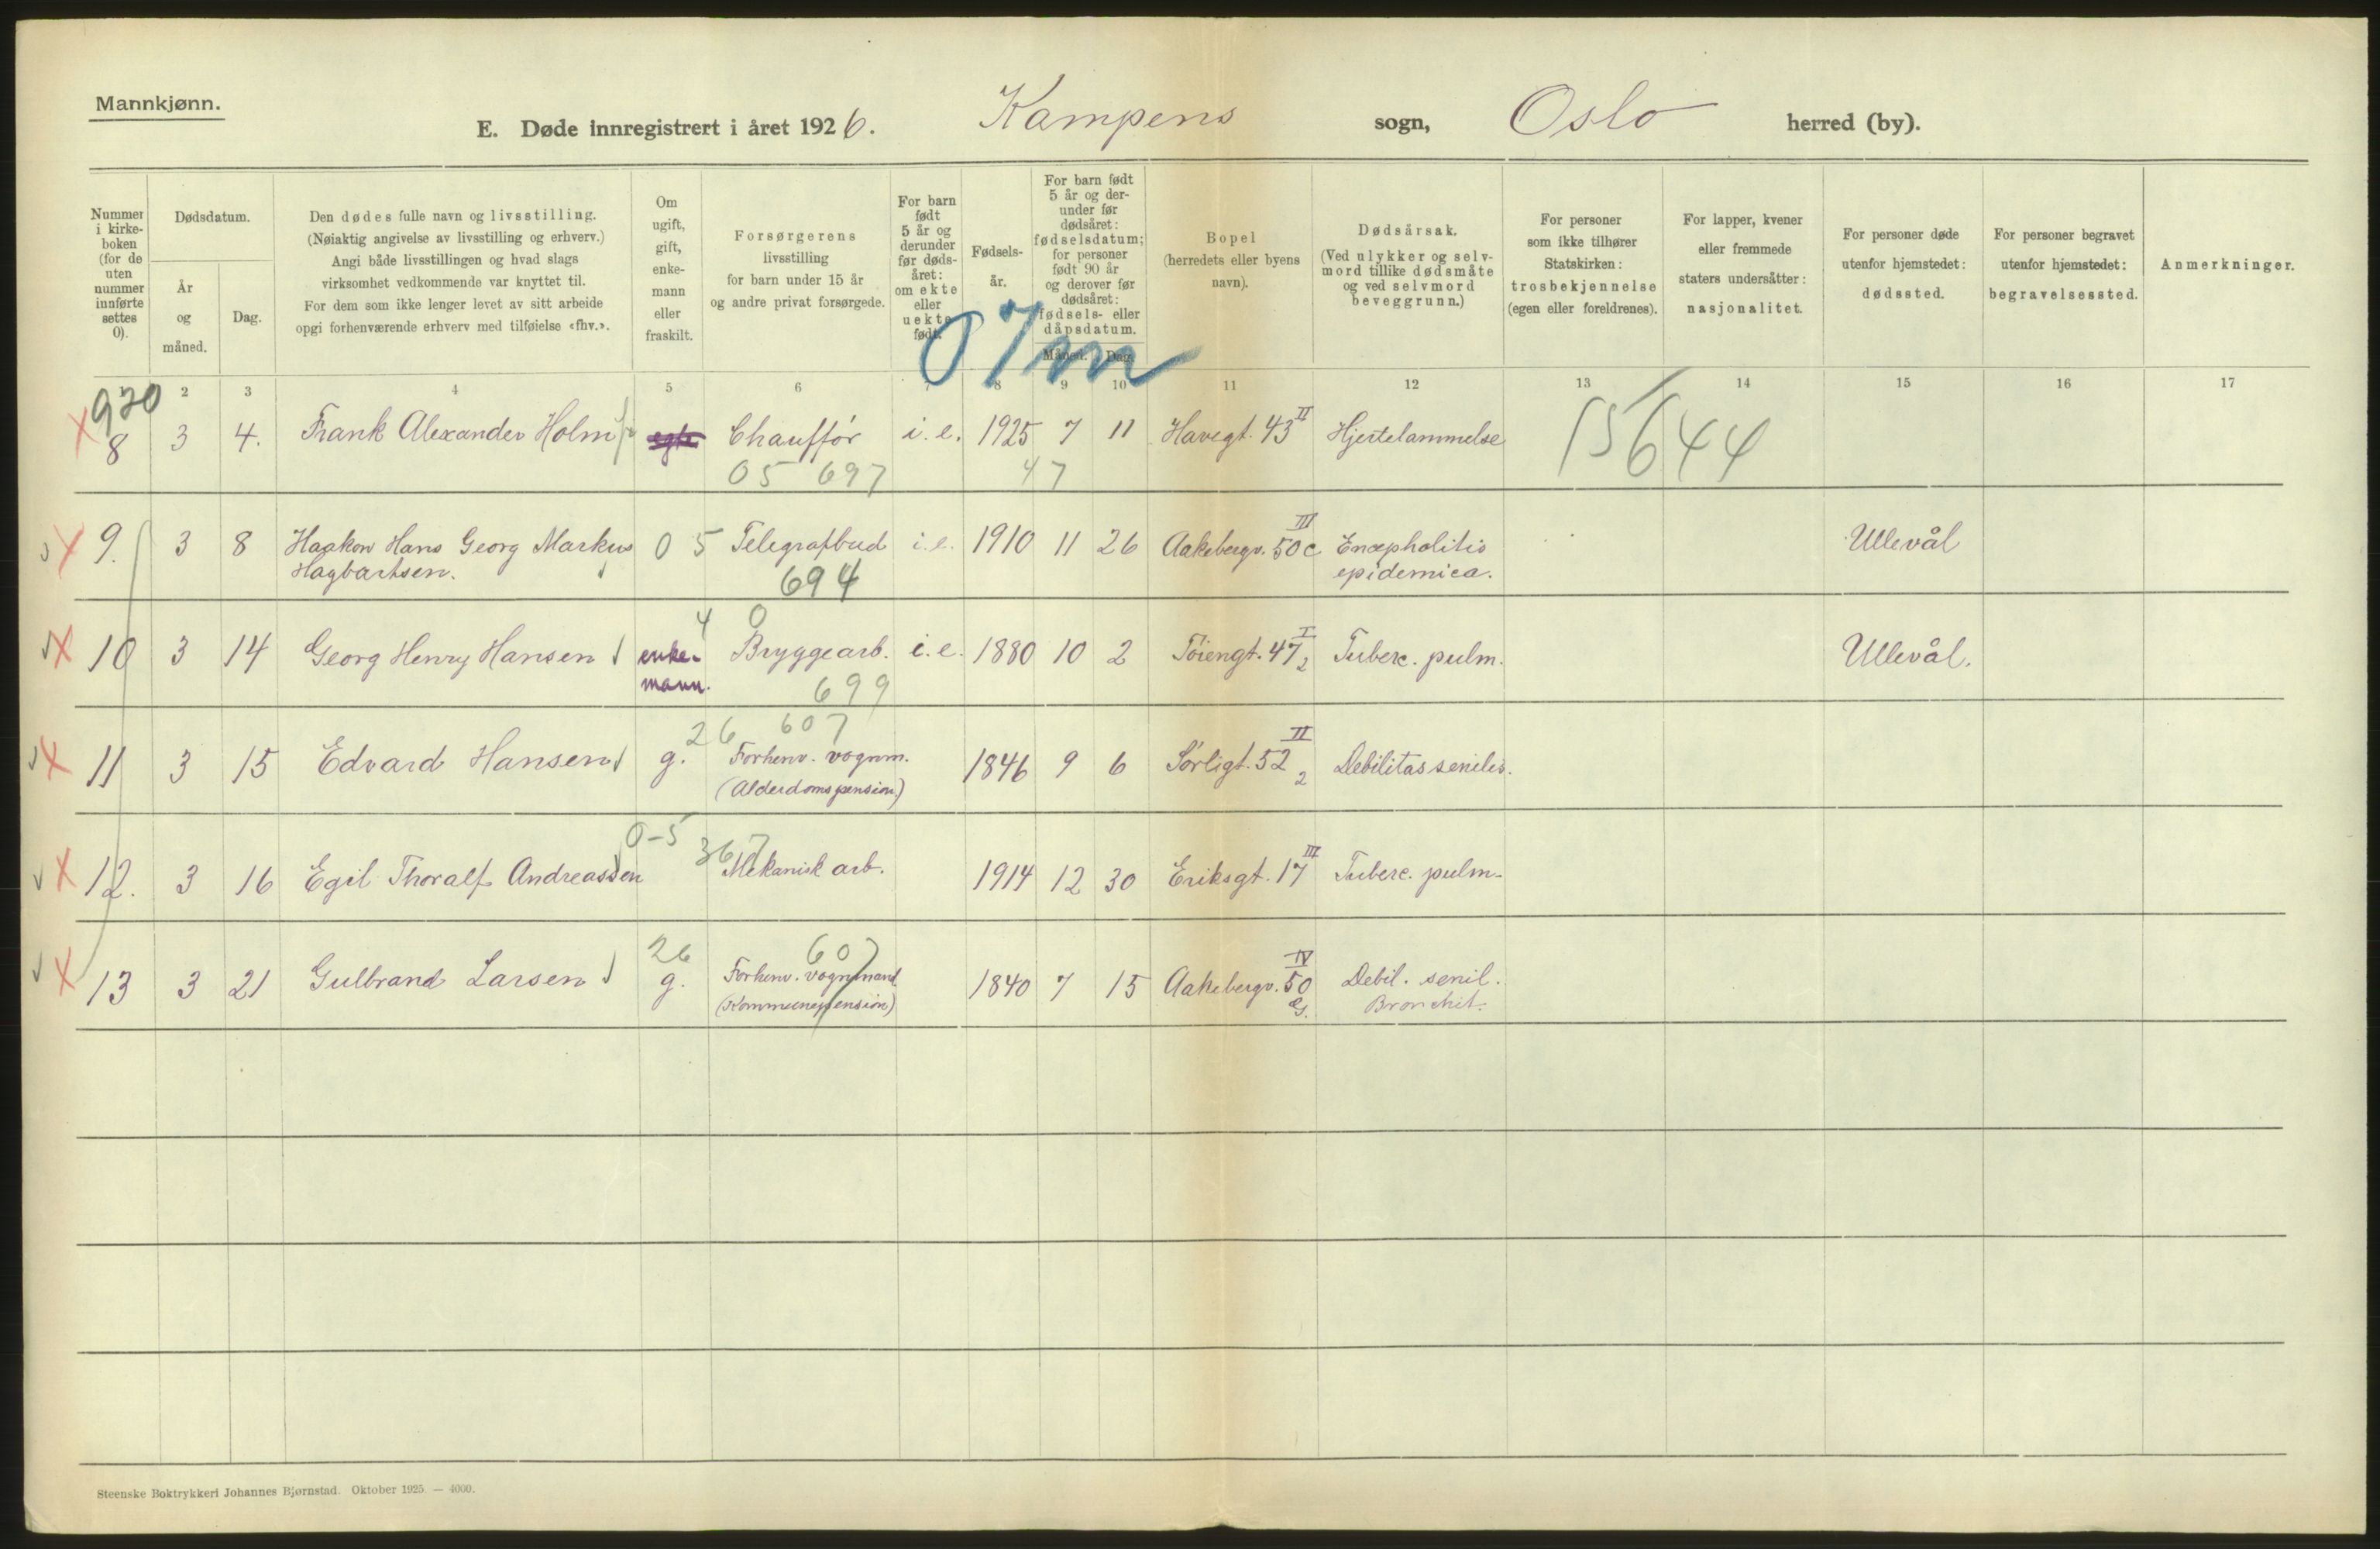 Mannkjønn.
E. Døde innregistrert i året 1926. Kampens sogn, Oslo herred (by).
Nummer i kirke- boken (for de uten nummer innførte settes 0).
Dødsdatum.
År og måned.
Dag.
Den dødes fulle navn og livsstilling.
(Nøiaktig angivelse av livsstilling og erhverv.)
Angi både livsstillingen og hvad slags
virksomhet vedkommende var knyttet til.
For dem som ikke lenger levet av sitt arbeide
opgi forhenværende erhverv med tilføielse «fhv.».
Om ugift, gift, enke- mann eller fraskilt.
Forsørgerens
livsstilling
for barn under 15 år
og andre privat forsørgede.
For barn født 5 år og derunder før døds- året: om ekte eller uekte født.
Fødsels- år.
For barn født 5 år og der- under før dødsåret: fødselsdatum; for personer født 90 år og derover før dødsåret: fødsels- eller dåpsdatum.
Måned. Dag.
Bopel
(herredets eller byens
navn).
Dødsårsak.
(Ved ulykker og selv-
mord tillike dødsmåte
og ved selvmord
beveggrunn.)
For personer
som ikke tilhører
Statskirken:
trosbekjennelse
(egen eller foreldrenes).
For lapper, kvener
eller fremmede
staters undersåtter:
nasjonalitet.
For personer døde
utenfor hjemstedet:
dødssted.
For personer begravet
utenfor hjemstedet:
begravelsessted.
Anmerkninger.
07m
2 3 4 5 6 7 8 9 10 11 12 13 14 15 16 17
920
8 3 4. Frank Alexander Holm egte Chauffør i.e. 1925 7 11 Havegt. 43 II Hjertelammelse 15644
05 697 47
9. 3 8 Haakon Hans Georg Markus 05 Telegrafbud i.e. 1910 11 26 Aakebergv. 50c III Encepholitis Ullevål
Hagbartsen. 694 epidemica.
4 0
10 3 14 Georg Henry Hansen enke- Bryggearb. i.e. 1880 10 2 Töiengt. 47 I 2 Tuberc. pulm. Ullevål.
mann. 699
26 607
11 3 15 Edvard Hansen g. Forhenv. vognm. 1846 9 6 Sørligt. 52 II 2 Debilitas seniles.
(Alderdomspension)
0-5 367
12. 3 16 Egil Thoralf Andreassen Mekanisk arb. 1914 12 30 Eriksgt. 17 III Tuberc. pulm.
26 607
13 3 21 Gulbrand Larsen g. Forhenv. vognmand 1840 7 15 Aakebergv. 50 IV Debil. senil.
(Kommunepension) Bronchit.
Steenske Boktrykkeri Johannes Bjørnstad. Oktober 1925. — 4000.